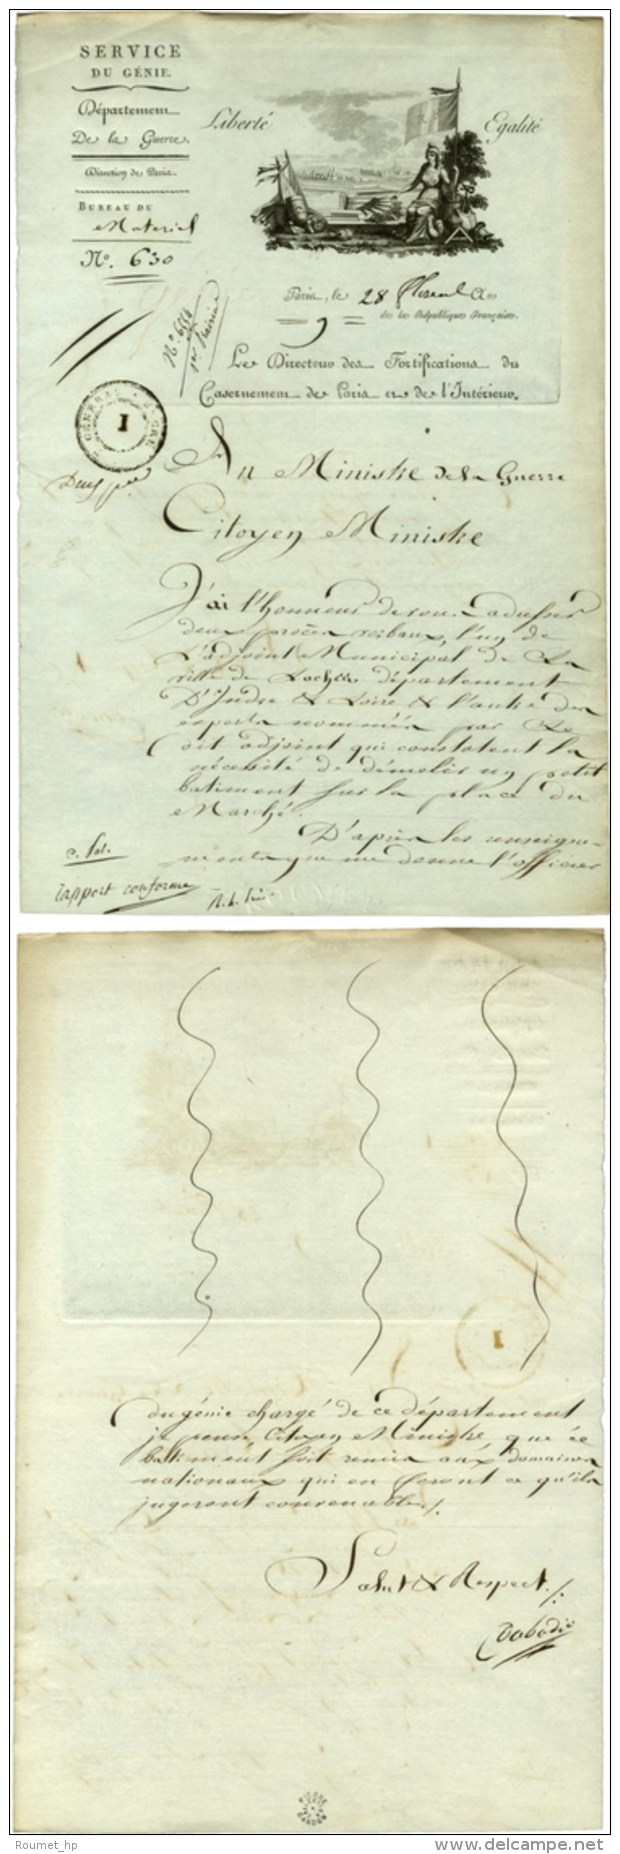 SERVICE
DU GÉNIE.
Département
De la Guerre.
Direction de Paris.
BUREAU DU
Materiel
N.º 630
Liberté
Egalité
Paris, le 28 floreal An
9 de la République Française.
Le Directeur des Fortifications du
Casernement de Paris et de l'Intérieur.
1
Au Ministre de la Guerre
Citoyen Ministre
J'ai l'honneur de vous adresser
deux procès verbaux, l'un de
L'adjoint Municipal de La
ville de Loches département
D'Indre & Loire & l'autre des
experts nommés par Le
dit adjoint qui constatent la
nécésité de démolir un petit
batiment sur la place du
Marché.
D'après les renseigne-
ments que me donne l'officier
rapport conforme
du génie chargé de ce département
je pense, Citoyen Ministre, que ce
batiment soit remis aux domaines
nationaux qui en feront ce qu'ils
jugeront convenable./.
Salut & Respect./.
Dabadie
Roumet_hp
www.delcampe.net